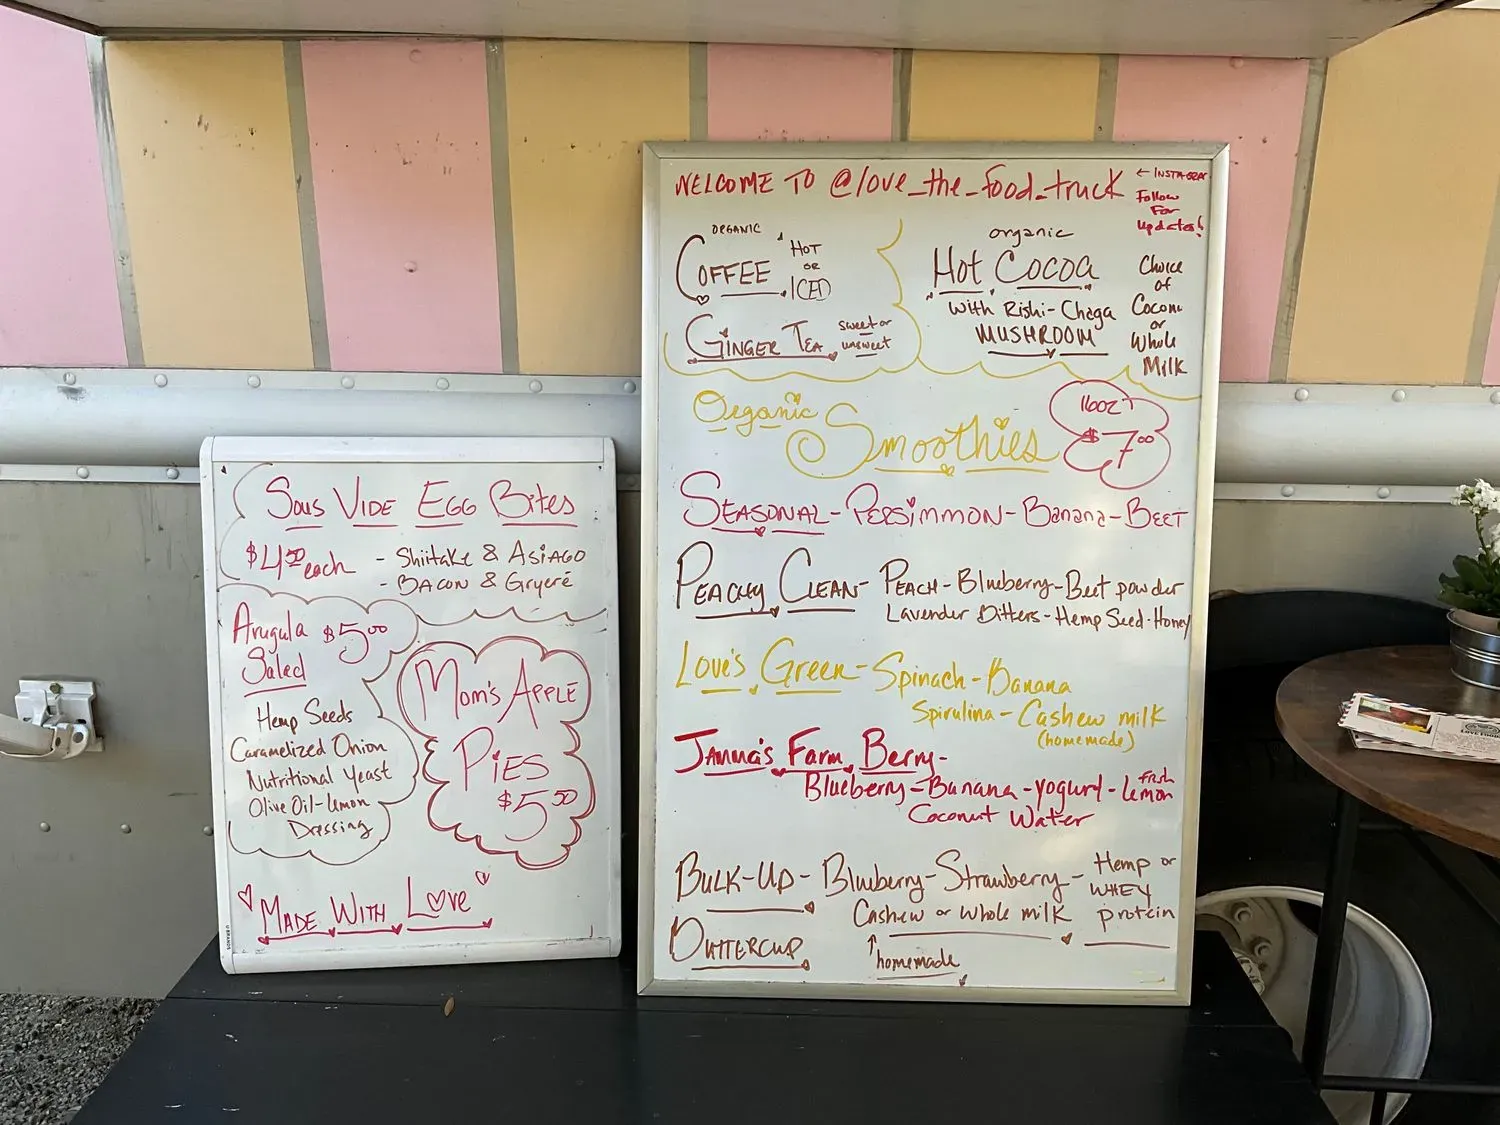 SOUS VIDE EGG BITES
$4.50 each - Shiitake & ASIAGO
- BACON & Gryeré
Arugula $5.00
Saled
Hemp Seeds
Caramelized Onion
Nutritional Yeast
Olive Oil-Lemon
Dressing
MOM'S APPLE
PIES
$5.50
MADE WITH LOVE
WELCOME TO @love_the_food_truck
← INSTAGRAM
Follow
For
updates!
ORGANIC
COFFEE
HOT
OR
ICED
GINGER TEA
sweet or
unsweet
organic
Hot Cocoa
with Rishi-Chaga
MUSHROOM
Choice
of
Coconut
or
Whole
Milk
Organic
Smoothies
16oz
$7.00
SEASONAL - PERSIMMON - Banana - BEET
PEACHY CLEAN - PEACH - Blueberry - Beet powder
Lavender Bitters - Hemp Seed - Honey
LOVE'S GREEN - Spinach - Banana
Spirulina - Cashew milk
(homemade)
Farm Berry -
Blueberry - Banana - yogurt - fresh Lemon
Coconut Water
BULK-UP - Blueberry - Strawberry - Hemp or
WHEY
protein
Cashew or whole milk
BUTTERCUP
↑
homemade
U BRANDS